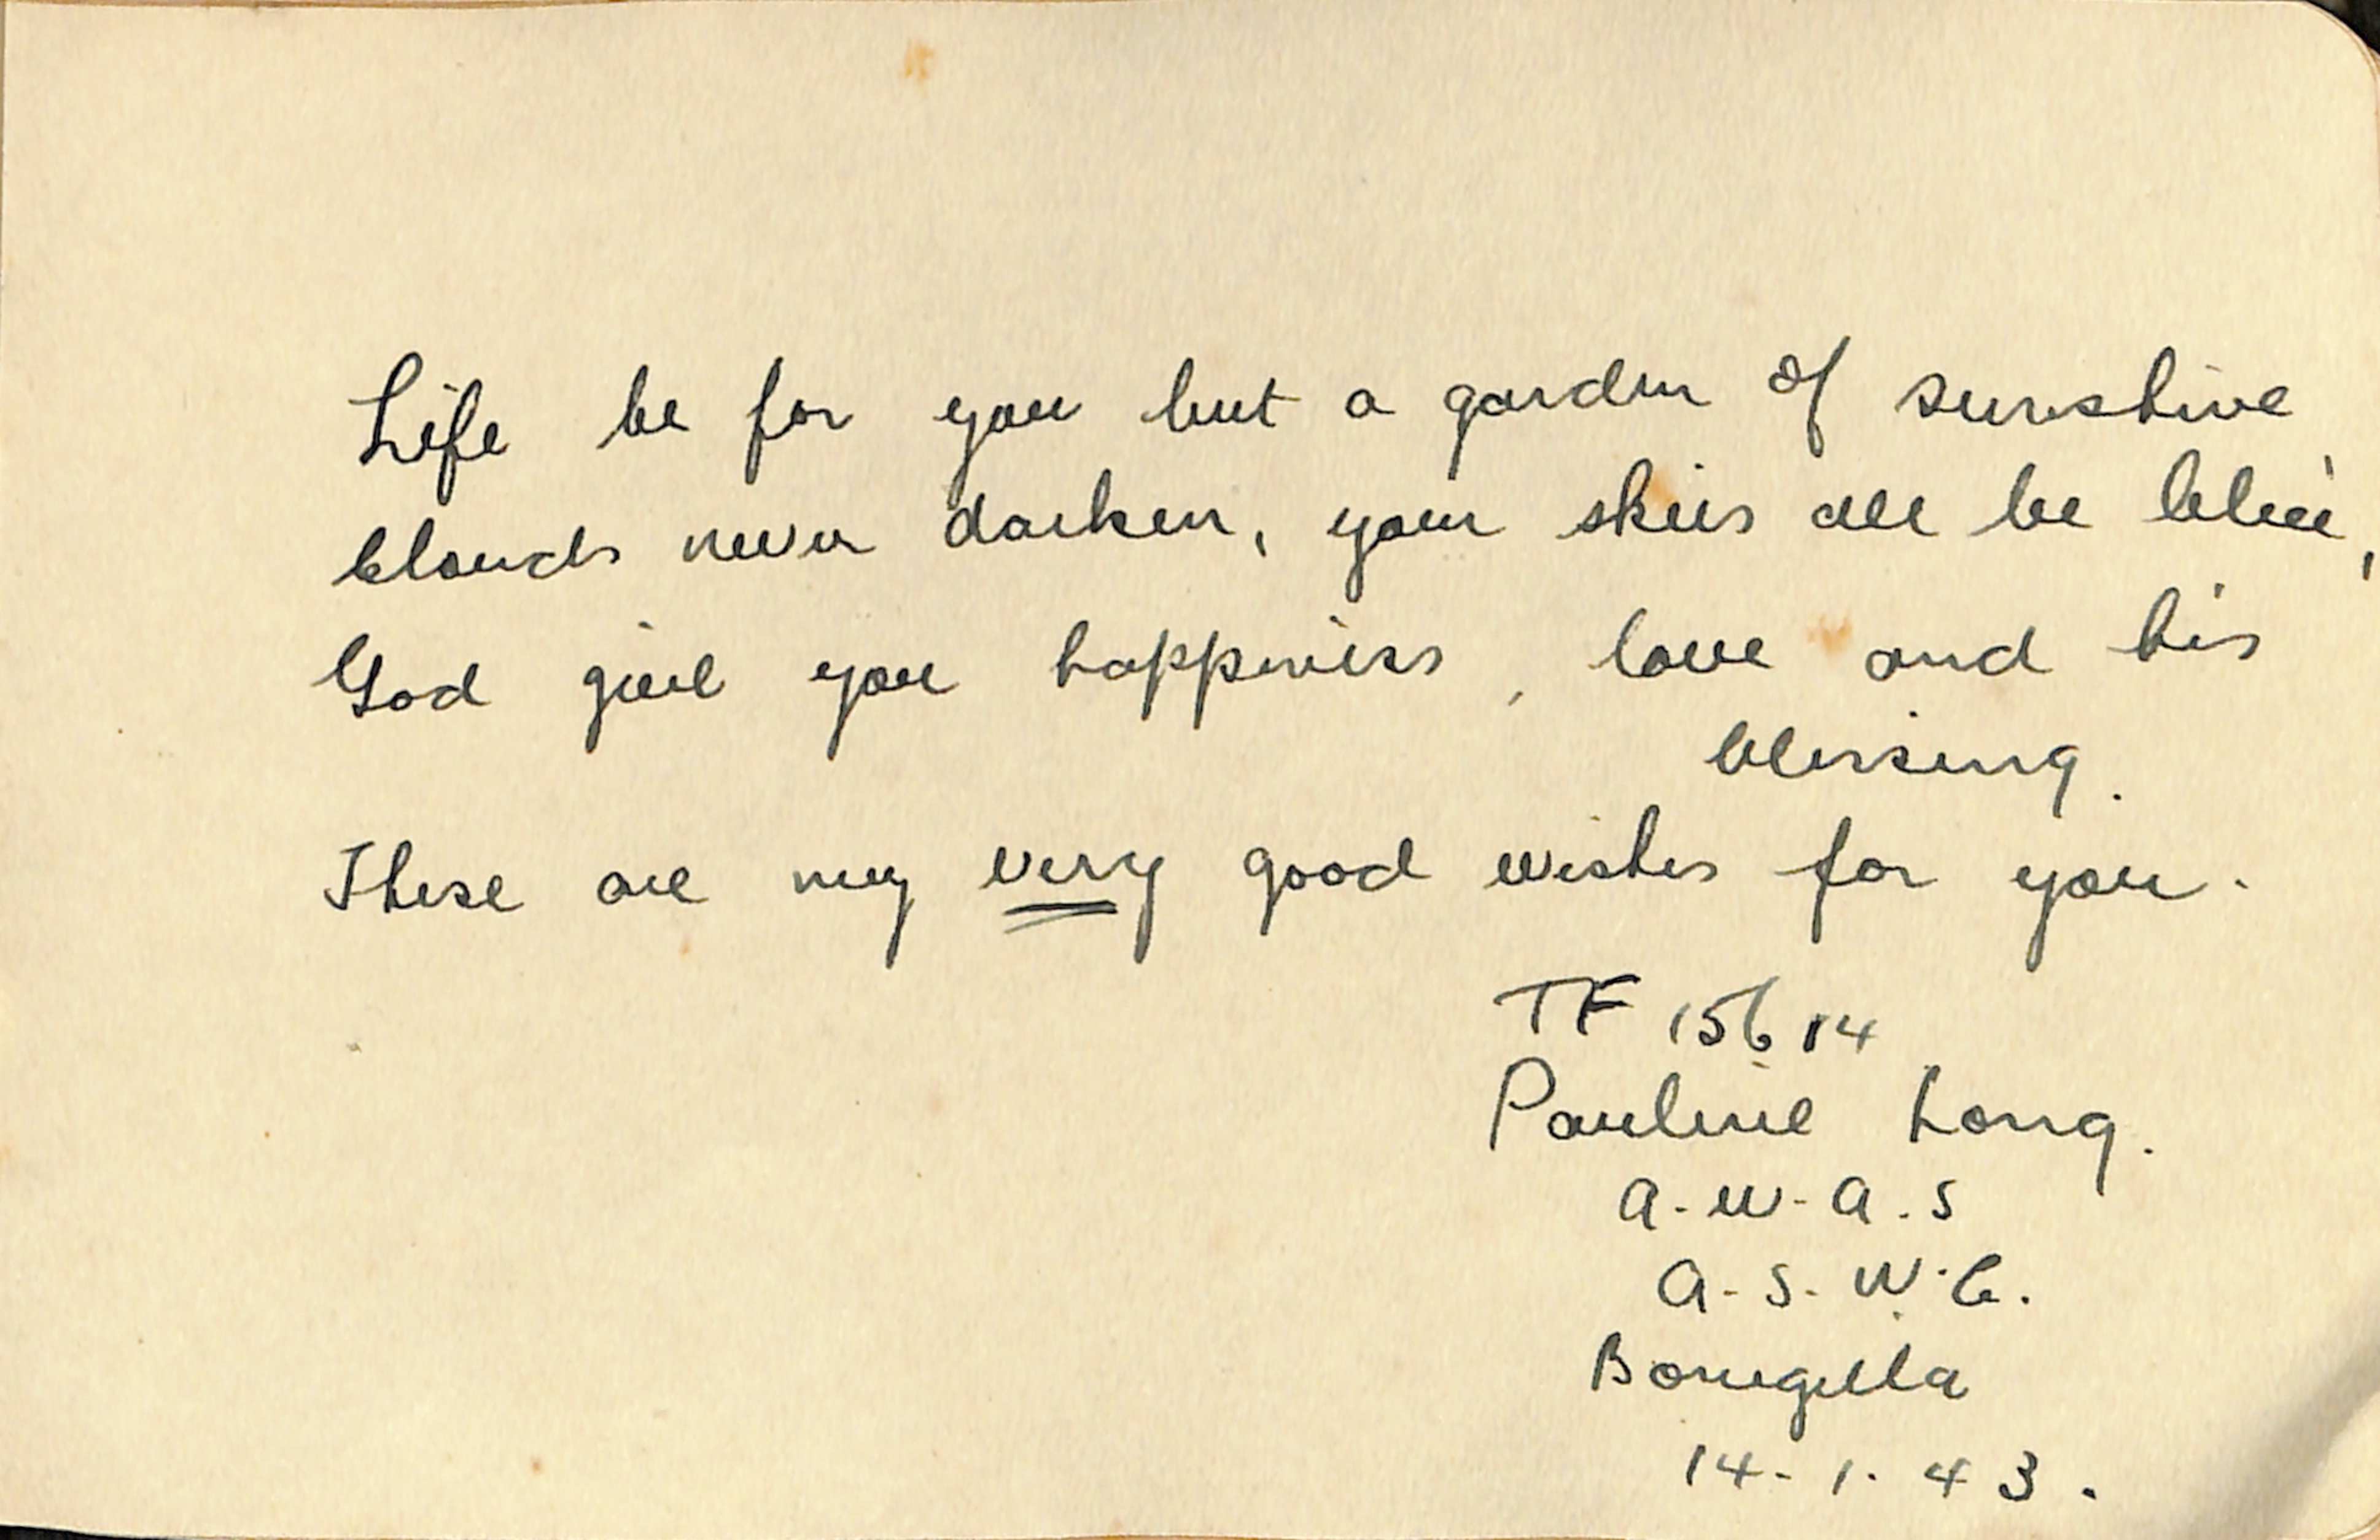 Life be for you but a garden of sunshine,
Clouds never darken, your skies all be blue,
God give you happiness, love and his
blessing.
These are my very good wishes for you.
TF 15614
Pauline Long.
A.W.A.S
A.S.W.C.
Bonegilla
14.1.43.